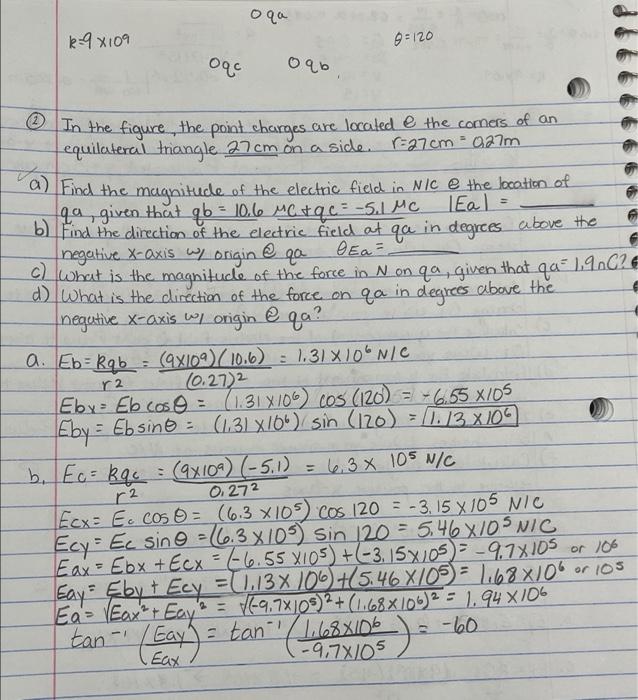 qa
k=9 x109
θ=120
qc qb
② In the figure, the point charges are located @ the corners of an
equilateral triangle 27cm on a side. r=27cm = 0.27m
a) Find the magnitude of the electric field in N/C @ the location of
qa, given that qb = 10.6 MC + qc = -5.1 MC |Ea| = ______
b) Find the direction of the electric field at qa in degrees above the
negative x-axis w/ origin @ qa θEa = ______
c) What is the magnitude of the force in N on qa, given that qa = 1.9nC?
d) What is the direction of the force on qa in degrees above the
negative x-axis w/ origin @ qa?
a. Eb = kqb/r2 = (9x109)(10.6)/(0.27)2 = 1.31 x 106 N/C
Ebx = Eb cosθ = (1.31 x106) cos (120) = -6.55 x105
Eby = Eb sinθ = (1.31 x106) sin (120) = 1.13 x106
b. Ec = kqc/r2 = (9x109)(-5.1)/0.272 = 6.3 x 105 N/C
Ecx = Ec cosθ = (6.3 x105) cos 120 = -3.15 x105 N/C
Ecy = Ec sinθ = (6.3 x105) sin 120 = 5.46 x105 N/C
Eax = Ebx + Ecx = (-6.55 x105)+(-3.15x105) = -9.7x105 or 106
Eay = Eby + Ecy = (1.13x106)+(5.46 x105) = 1.68x106 or 105
Ea = √Eax2+Eay2 = √(-9.7x105)2+(1.68x106)2 = 1.94 x106
tan-1 (Eay/Eax) = tan-1 (1.68x106/-9.7x105) = -60